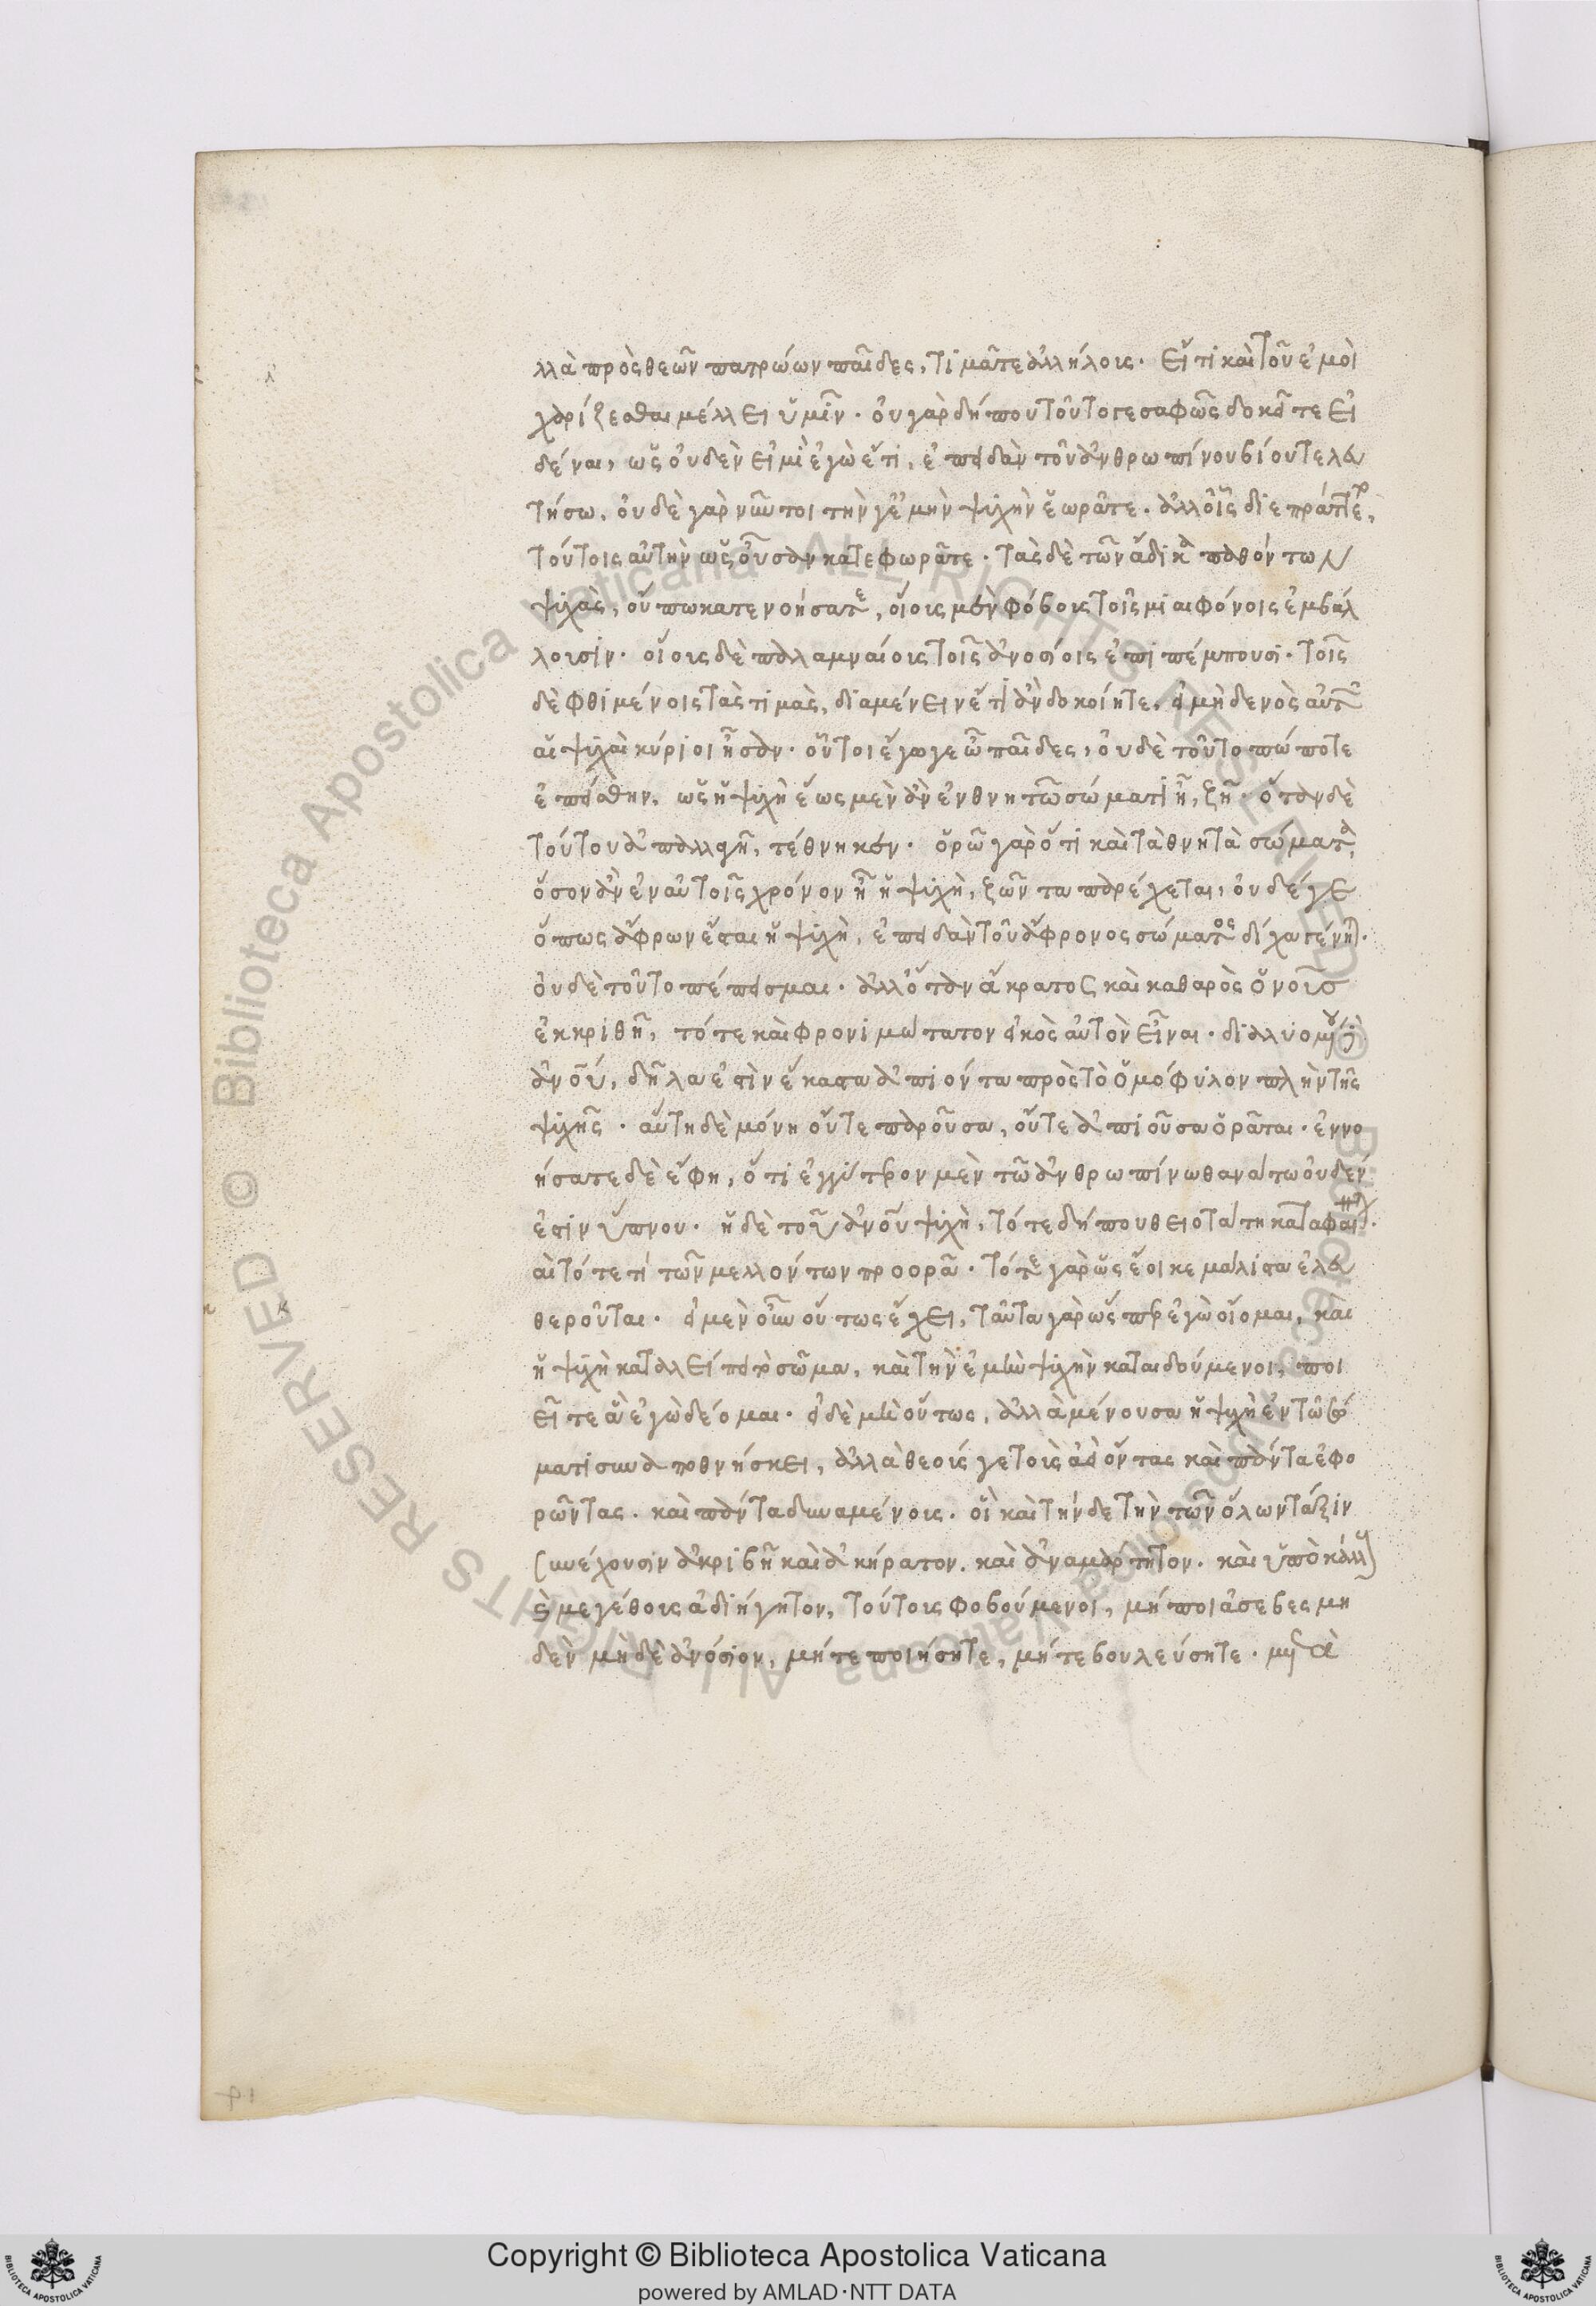 λλὰ πρὸς θεῶν πατρώων παῖδες, τιμᾶτε ἀλλήλοις. Εἴ τι καὶ τοῦ ἐμοὶ
χαρίζεσθαι μέλλει ὑμῖν. οὐ γὰρ δήπου τοῦτο γε σαφῶς δοκεῖτε εἰ
δέναι, ὡς οὐδὲν εἰμὶ ἐγὼ ἔτι, ἐπειδὰν τοῦ ἀνθρωπίνου βίου τελευ
τήσω. οὐδὲ γὰρ νῦν τοι τὴν γ' ἐμὴν ψυχὴν ἑωρᾶτε. ἀλλ' οἷς διεπράττετο,
τούτοις αὐτὴν ὡς οὖσαν κατεφωρᾶτε. τὰς δὲ τῶν ἄδικα παθόντων
ψυχὰς, οὔπω κατενοήσατε, οἵοις μὲν φόβοις τοῖς μιαιφόνοις ἐμβάλ
λουσιν. οἵοις δὲ παλαμναίοις τοῖς ἀνοσίοις ἐπιπέμπουσι. τοῖς
δὲ φθιμένοις τὰς τιμὰς, διαμένειν ἔτι ἂν δοκοίητε, εἰ μηδενὸς αὐτῶν
αἱ ψυχαὶ κύριοι ἦσαν. οὔτοι ἔγωγε ὦ παῖδες, οὐδὲ τοῦτο πώποτε
ἐπείσθην, ὡς ἡ ψυχὴ ἕως μὲν ἂν ἐν θνητῷ σώματι ᾖ, ζῇ. ὅταν δὲ
τούτου ἀπαλλαγῇ, τέθνηκεν. ὁρῶ γὰρ ὅτι καὶ τὰ θνητὰ σώματα,
ὅσον ἂν ἐν αὐτοῖς χρόνον ᾖ ἡ ψυχὴ, ζῶντα παρέχεται, οὐδέ γε
ὅπως ἄφρων ἔσται ἡ ψυχὴ, ἐπειδὰν τοῦ ἄφρονος σώματος δίχα γένηται.
οὐδὲ τοῦτο πέπεισμαι. ἀλλ' ὅταν ἄκρατος καὶ καθαρὸς ὁ νοῦς
ἐκκριθῇ, τότε καὶ φρονιμώτατον εἰκὸς αὐτὸν εἶναι. διαλυομένου δὲ
ἀνοῦ, δῆλα ἐστὶν ἕκαστα ἀπιόντα πρὸς τὸ ὁμόφυλον πλὴν τῆς
ψυχῆς. αὕτη δὲ μόνη οὔτε παροῦσα, οὔτε ἀπιοῦσα ὁρᾶται. ἐννο
ήσατε δὲ ἔφη, ὅτι ἐγγύτερον μὲν τῷ ἀνθρωπίνω θανάτω οὐδέν
ἐστιν ὕπνου. ἡ δὲ τοῦ ἀνοῦ ψυχὴ, τότε δήπου θειοτάτη καταφαίνεται.
αι τότε τί τῶν μελλόντων προορᾷ. τότε γὰρ ὡς ἔοικε μάλιστα ἐλευ
θεροῦται. εἰ μὲν οὖν οὕτως ἔχει, ταῦτα γὰρ ὥσπερ ἐγὼ οἴομαι, καὶ
ἡ ψυχὴ καταλείπει τὸ σῶμα, καὶ τὴν ἐμὴν ψυχὴν καταιδούμενοι, ποι
εῖτε ἃ ἐγὼ δέομαι. εἰ δὲ μὴ οὕτως, ἀλλὰ μένουσα ἡ ψυχὴ ἐν τῷ σώ
ματι συναποθνήσκει, ἀλλὰ θεούς γε τοὺς ἀεὶ ὄντας καὶ πάντα ἐφο
ρῶντας. καὶ πάντα δυναμένοις. οἳ καὶ τήνδε τὴν τῶν ὅλων τάξιν
συνέχουσιν ἀκριβῆ καὶ ἀκήρατον. καὶ ἀναμάρτητον. καὶ ὑπὸ κάλλους
καὶ μεγέθους ἀδιήγητον, τούτοις φοβούμενοι, μήποι ἀσεβες μη
δὲν μηδὲ ἀνόσιον, μήτε ποιήσητε, μήτε βουλεύσητε. μετὰ